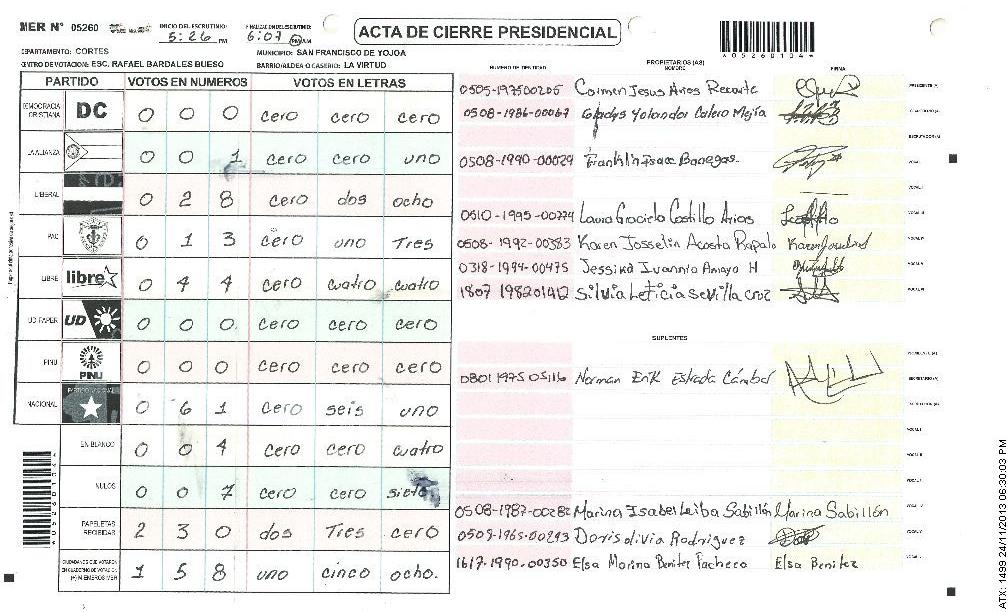 MER N° 05260
INICIO DEL ESCRUTINIO: 5:26 PM
FINALIZACION DEL ESCRUTINIO: 6:07 PM
ACTA DE CIERRE PRESIDENCIAL
*05260104*
DEPARTAMENTO: CORTES
MUNICIPIO: SAN FRANCISCO DE YOJOA
CENTRO DE VOTACION: ESC. RAFAEL BARDALES BUESO
BARRIO/ALDEA O CASERIO: LA VIRTUD
PARTIDO VOTOS EN NUMEROS VOTOS EN LETRAS
DEMOCRACIA CRISTIANA DC 0 0 0 cero cero cero
LA ALIANZA 0 0 1 cero cero uno
LIBERAL 0 2 8 cero dos ocho
PAC 0 1 3 cero uno Tres
LIBRE libre 0 4 4 cero cuatro cuatro
UD-FAPER UD 0 0 0 cero cero cero
PINU PINU 0 0 0 cero cero cero
NACIONAL 0 6 1 cero seis uno
EN BLANCO 0 0 4 cero cero cuatro
NULOS 0 0 7 cero cero siete
PAPELETAS RECIBIDAS 2 3 0 dos Tres cero
CIUDADANOS QUE VOTARON EN CUADERNO DE VOTACION (+) MIEMBROS MER 1 5 8 uno cinco ocho.
*05260104*
NUMERO DE IDENTIDAD
PROPIETARIOS (AS)
NOMBRE
FIRMA
0505-197500205 Carmen Jesus Arios Recarte PRESIDENTE (A)
0508-1986-00067 Gladys Yolanda Calero Mejia SECRETARIO (A)
ESCRUTADOR (A)
0508-1990-00029 Franklin Isaac Banegas. VOCAL I
VOCAL II
0510-1995-00774 Laura Graciela Castillo Arias VOCAL III
0508-1992-00383 Karen Josselin Acosta Rapalo VOCAL IV
0318-1994-00475 Jessika Ivannia Amaya H VOCAL V
1807 198201412 Silvia Leticia Sevilla Cruz VOCAL VI
SUPLENTES
PRESIDENTE (A)
0801 1975 05116 Norman Erik Estrada Cámbar SECRETARIO (A)
ESCRUTADOR (A)
VOCAL I
VOCAL II
VOCAL III
0508-1987-00282 Marina Isabel Leiba Sabillón Marina Sabillón
0509-1965-00293 Doris olivia Rodriguez
1617-1990-00350 Elsa Marina Benitez Pacheco Elsa Benitez
ATX: 1499 24/11/2013 06:30:03 PM